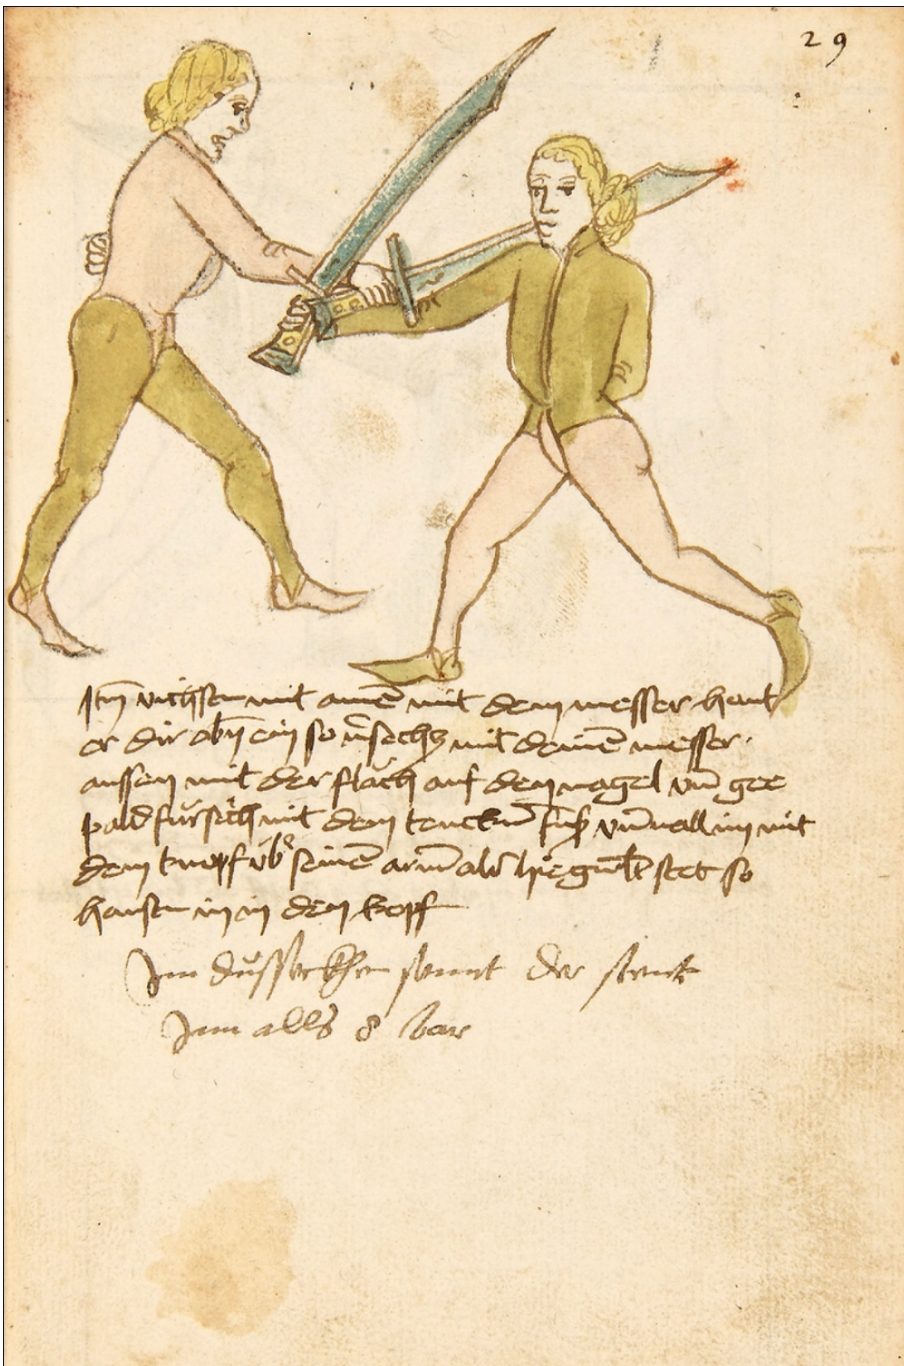 29
Itm̄ vichstu mit aineē mit dem messer haut
er dir obn̄ ein so v̄setz mit deinē messer ·
aussen mit der flãch auf den nagel vn̄ gee
pald fürsich mit dem lencken̄ fuß vn̄ vall im mit
dem knopf übˀ seinen arm̄ als hie gmõlt stet so
haustu in in den kopf
Im dussecken der
Jm alls 8